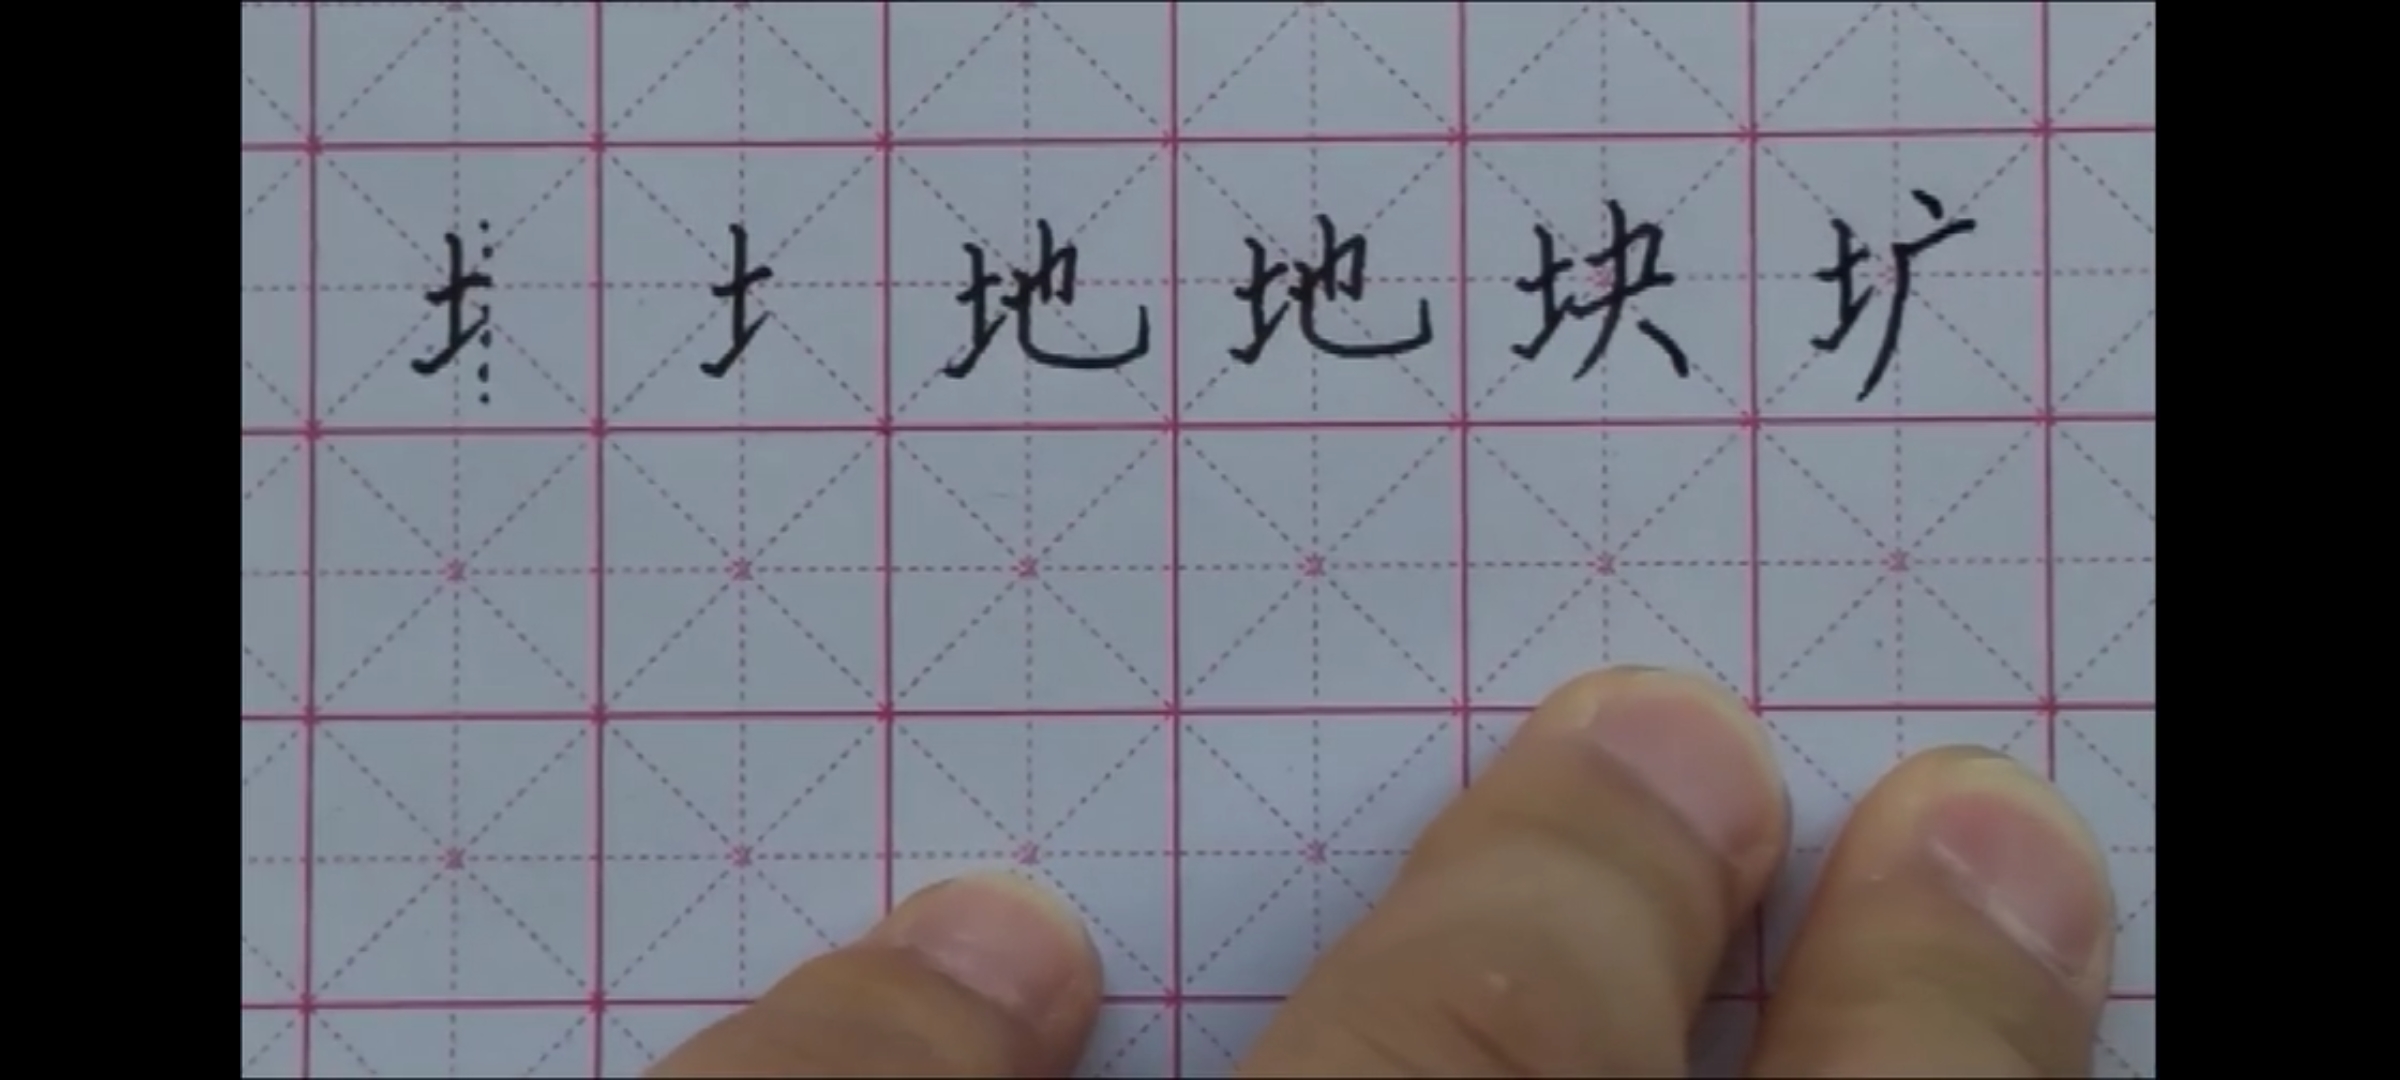 土 土 地 地 块 圹